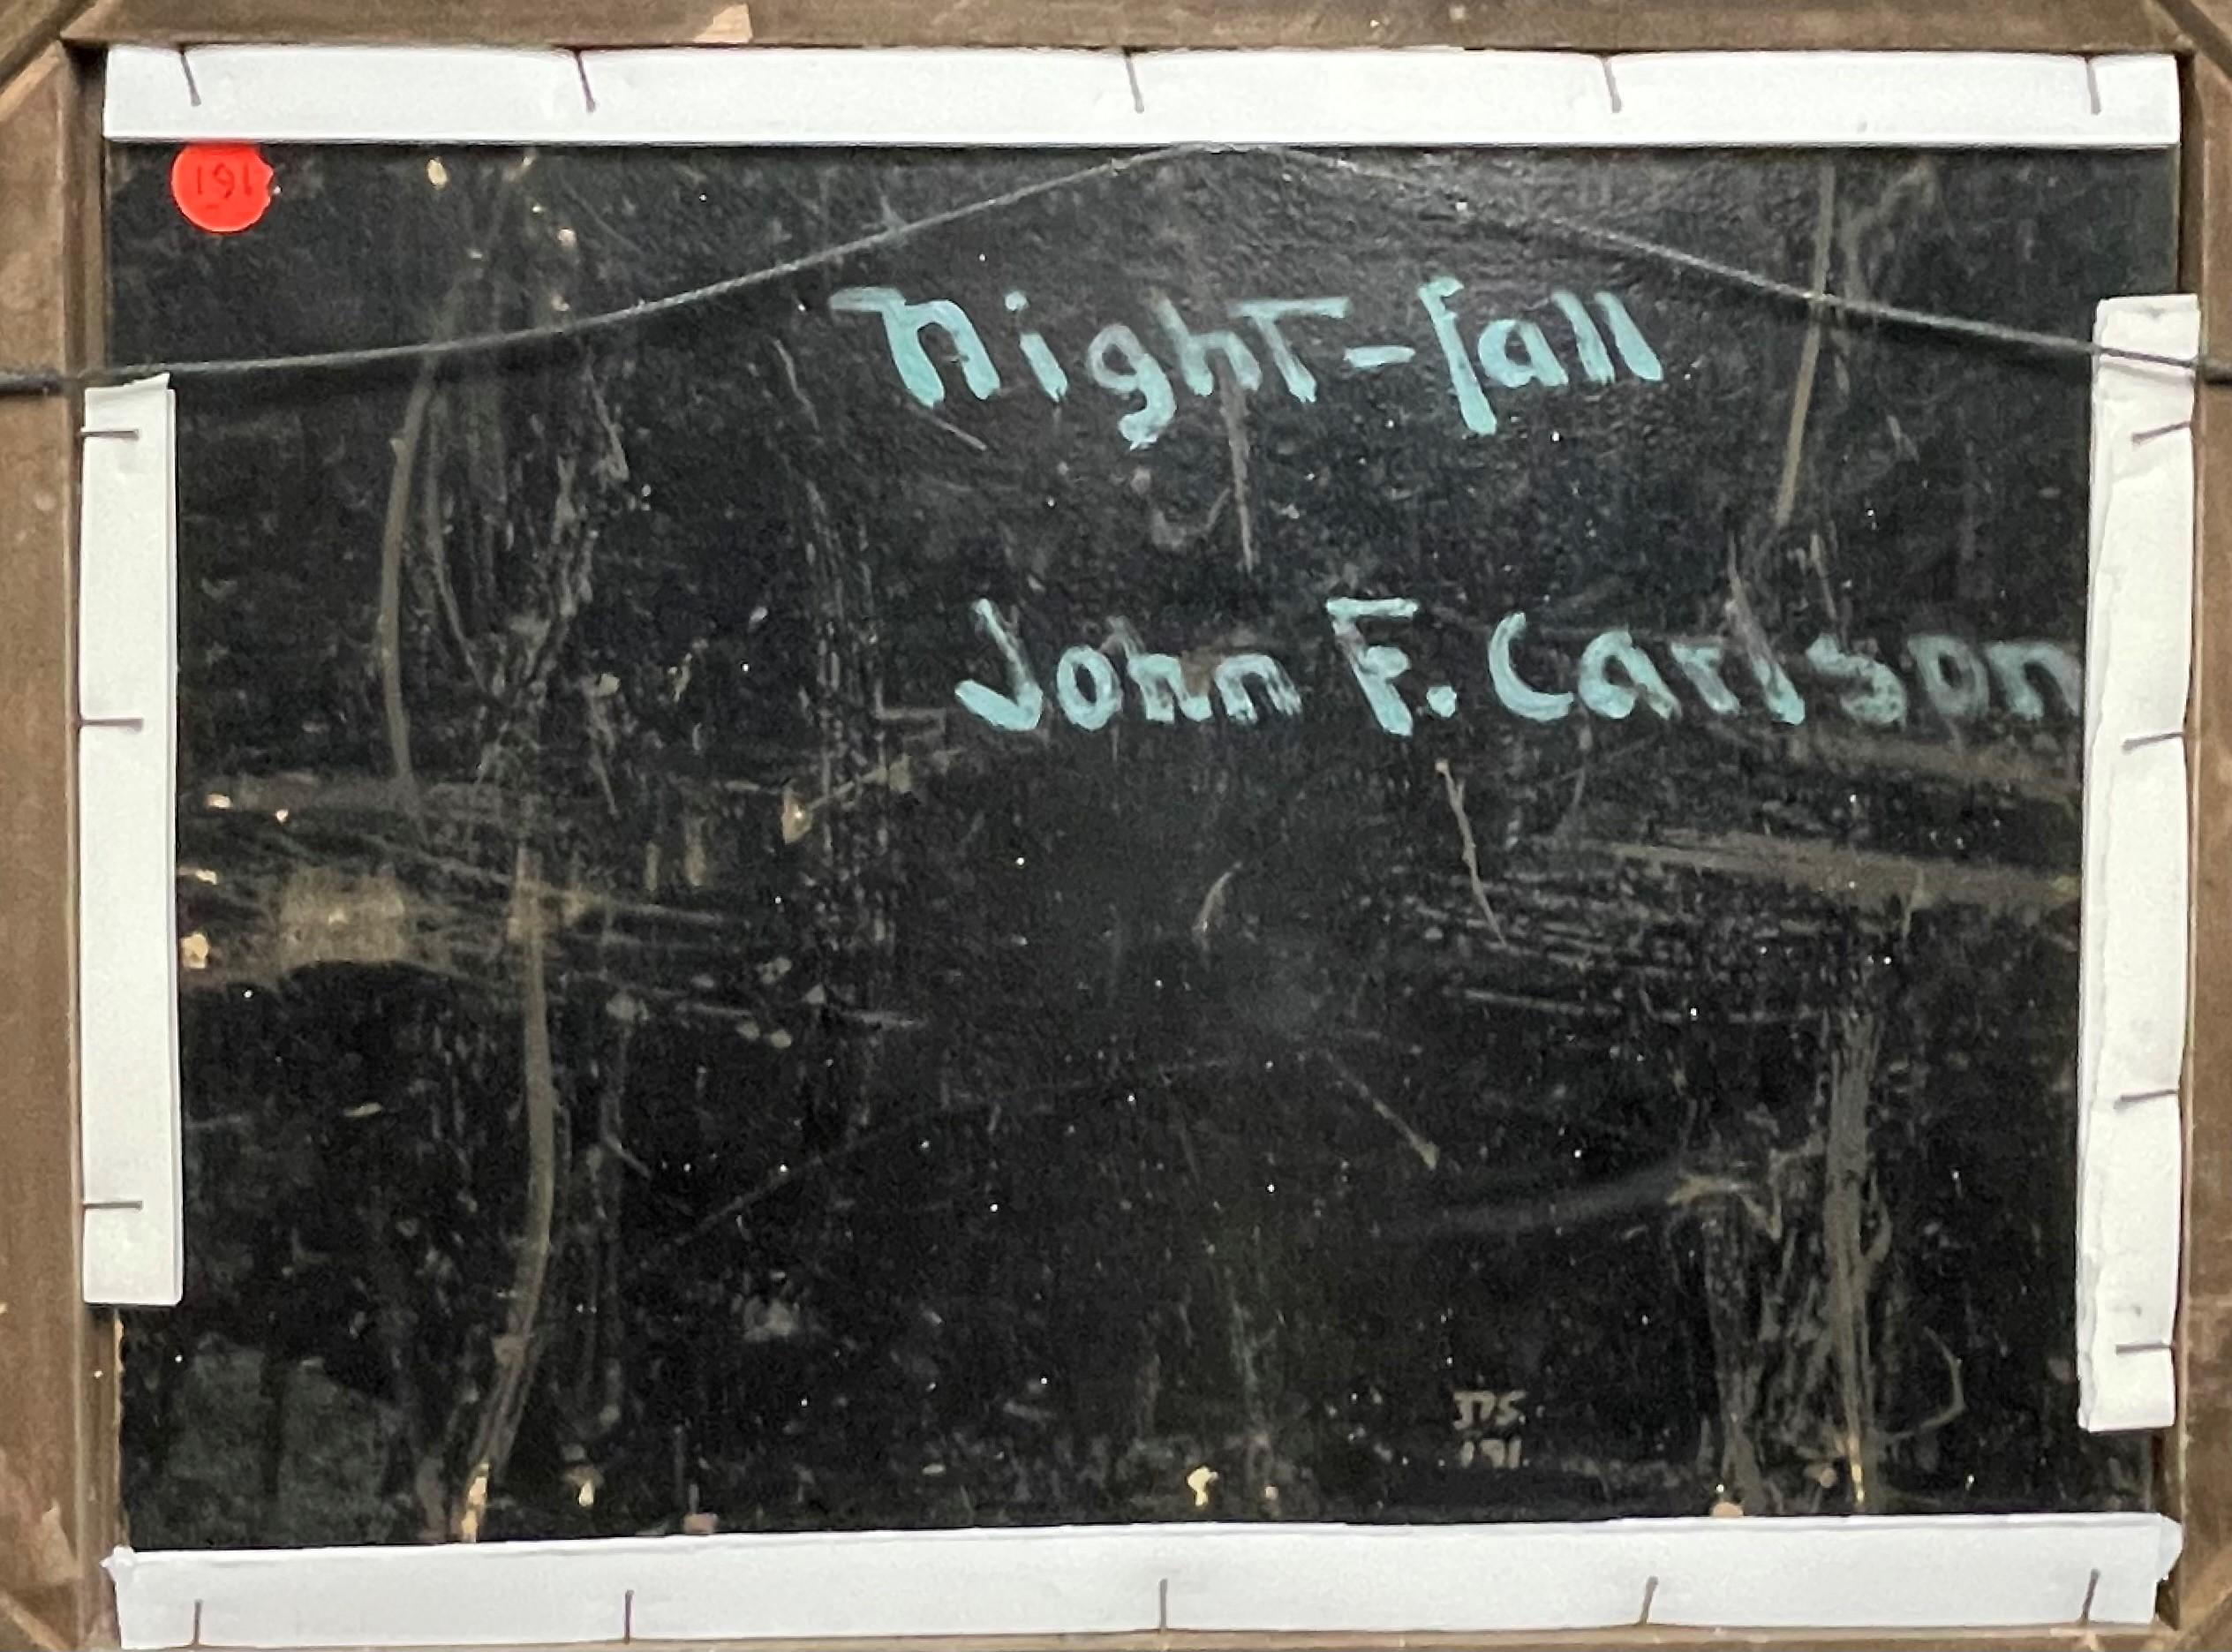 191
Night-fall
John F. Carlson
375.
191